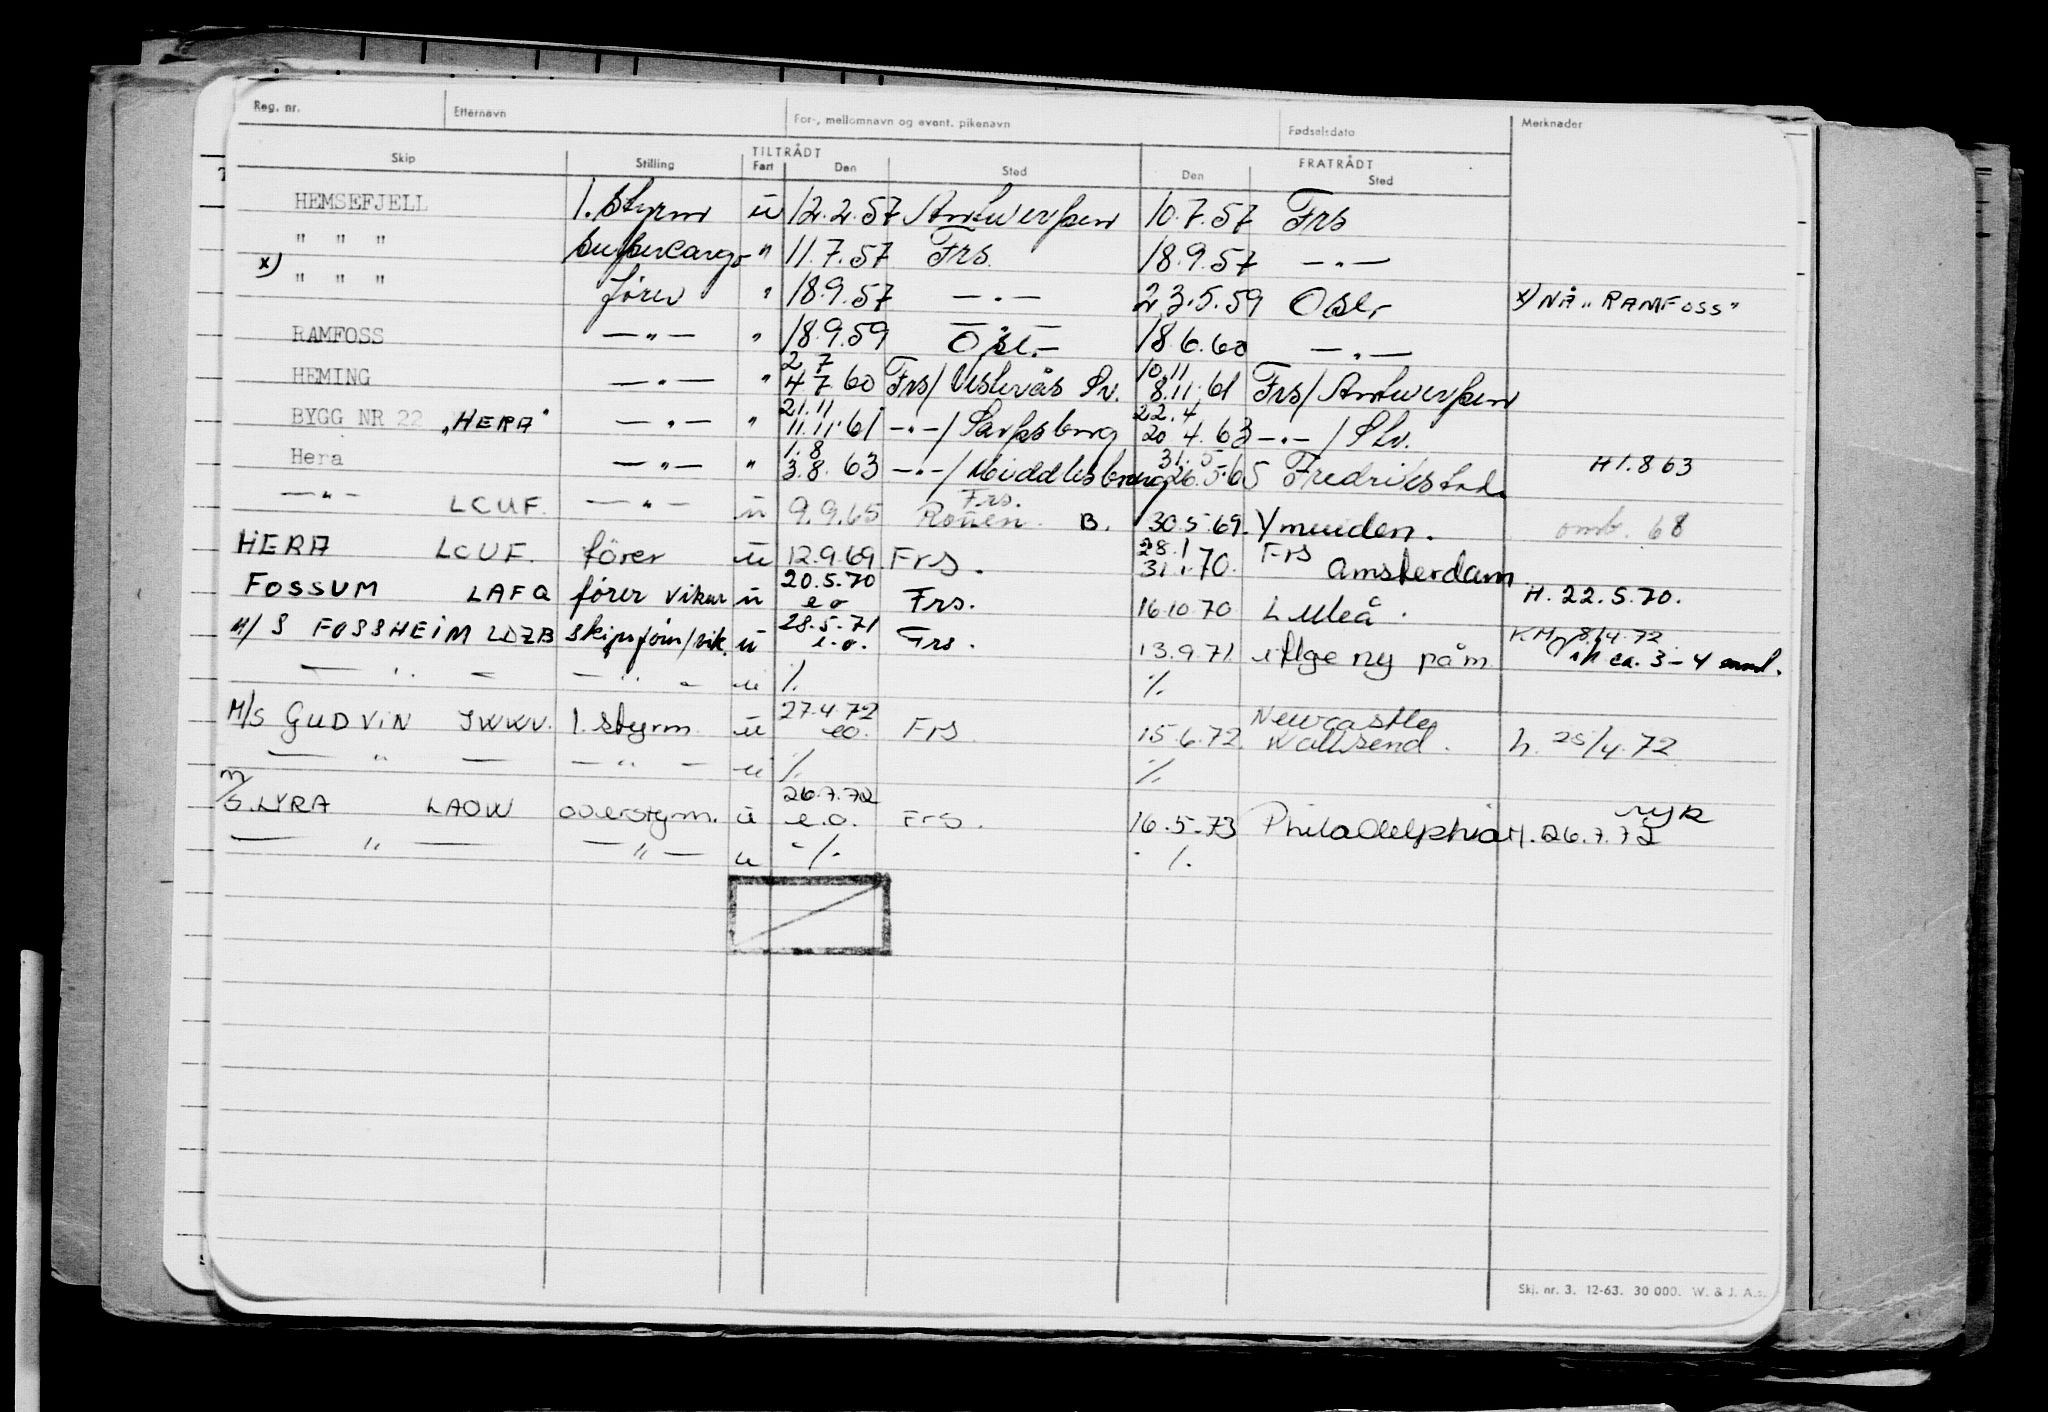 Reg. nr. Etternavn For-, mellomnavn og event. pikenavn Fødselsdato Merknader
Skip Stilling TILTRÅDT Fart Den Sted FRATRÅDT Den Sted
HEMSEFJELL 1. Styrm u 12.2.57 Antwerpen 10.7.57 Frs
" " " Supercargo " 11.7.57 Frs. 18.9.57 — " —
x) " " " fører " 18.9.57 — " — 23.5.59 Oslo x) NÅ "RAMFOSS"
RAMFOSS — " — " 18.9.59 Oslo 18.6.60 — " —
2 7 10.11
HEMING — " — " 4 7 60 Frs/ Sv. 8.11.61 Frs/Antwerpen
21.11 22.4
BYGG NR 22 "HERA" — " — " 11.11.61 — " —/Sarpsborg 20 4.63 — " —/
1.8 31.5
Hera — " — " 3.8.63 — " —/Middlesbrug 26.5.65 Fredrikstad H 1.8 63
Frs.
— " — LCUF. — " — u 9.9.65 Rouen. B. 30.5.69. Ymuiden. omb. 68
28.1 Frs
HERA LCUF. fører u 12.9.69 Frs. 31.1.70. Amsterdam
20.5.70
FOSSUM LAFQ fører vikar u e o Frs. 16.10.70 Luleå. H. 22.5.70.
28.5.71 8/4.72
M/S FOSSHEIM LDZB skipsfør/vik. u e.o. Frs. 13.9.71. ny påm ca. 3-4 mnd.
— " — — " — u %. %.
27.4.72 Newcastle
M/S GUDVIN JWWV. 1. styrm. u eo. Frs 15.6.72. Wallsend. h. 25/4.72
— " — — " — u %. %.
26.7.72 syk
M/S. LYRA LAOW overstyrm. u e.o. Frs. 16.5.73 Philadelphia H. 26.7.72
— " — — " — u %. %.
Skj. nr. 3. 12-63. 30 000. W. & J. A.s.